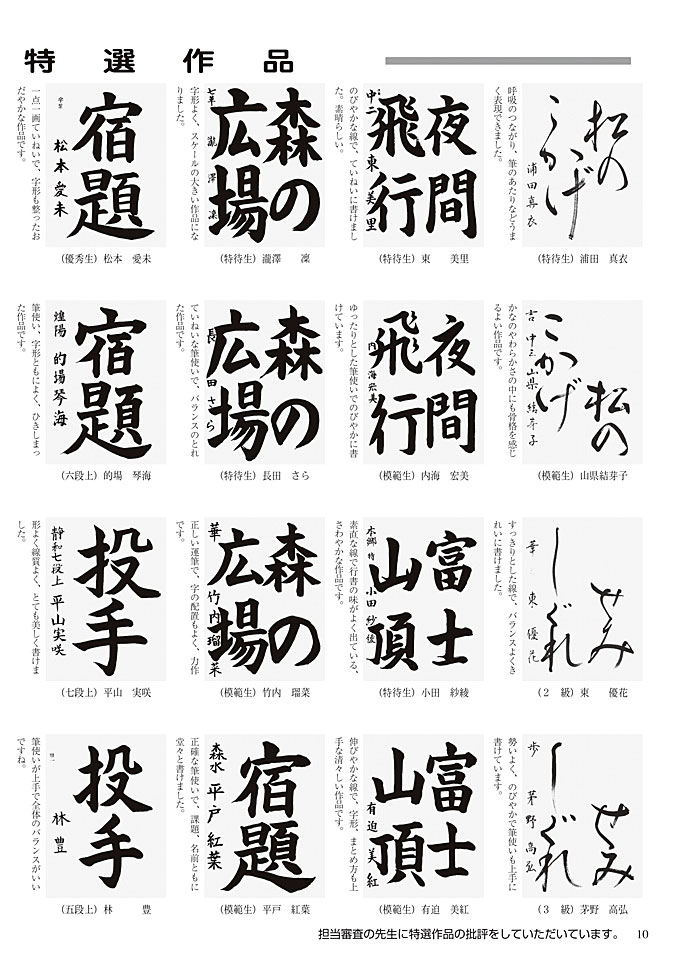 特選作品
松の
こかげ
浦田真衣
呼吸のつながり、筆のあたりなどうま
く表現できました。
(特待生) 浦田　真衣
夜間
飛行
中二 東 美里
のびやかな線で、ていねいに書けまし
た。素晴らしい。
(特待生) 東　美里
森の
広場
七年 瀧澤 凜
字形よく、スケールの大きい作品にな
りました。
(特待生) 瀧澤　凜
宿題
松本愛未
一点一画ていねいで、字形も整ったお
だやかな作品です。
(優秀生) 松本　愛未
松の
こかげ
山県結芽子
かなのやわらかさの中にも骨格を感じ
るよい作品です。
(模範生) 山県結芽子
夜間
飛行
内海宏美
ゆったりとした筆使いでのびやかに書
けています。
(模範生) 内海　宏美
森の
広場
長田さら
ていねいな筆使いで、バランスのとれ
た作品です。
(特待生) 長田　さら
宿題
煌陽 的場琴海
筆使い、字形ともによく、ひきしまっ
た作品です。
(六段上) 的場　琴海
せみ
しぐれ
華 東優花
すっきりとした線で、バランスよくき
れいに書けました。
(２　級) 東　優花
富士
山頂
小田紗綾
素直な線で行書の味がよく出ている、
さわやかな作品です。
(特待生) 小田　紗綾
森の
広場
華 竹内瑠菜
正しい運筆で、字の配置もよく、力作
です。
(模範生) 竹内　瑠菜
投手
静和七段上 平山実咲
形よく線質よく、とても美しく書けま
した。
(七段上) 平山　実咲
せみ
しぐれ
歩 茅野高弘
勢いよく、のびやかで筆使いも上手に
書けています。
(３　級) 茅野　高弘
富士
山頂
有迫美紅
伸びやかな線で、字形、まとめ方も上
手な清々しい作品です。
(模範生) 有迫　美紅
宿題
森水 平戸紅葉
正確な筆使いで、課題、名前ともに
堂々と書けました。
(模範生) 平戸　紅葉
投手
林豊
筆使いが上手で全体のバランスがいい
ですね。
(五段上) 林　豊
担当審査の先生に特選作品の批評をしていただいています。 10